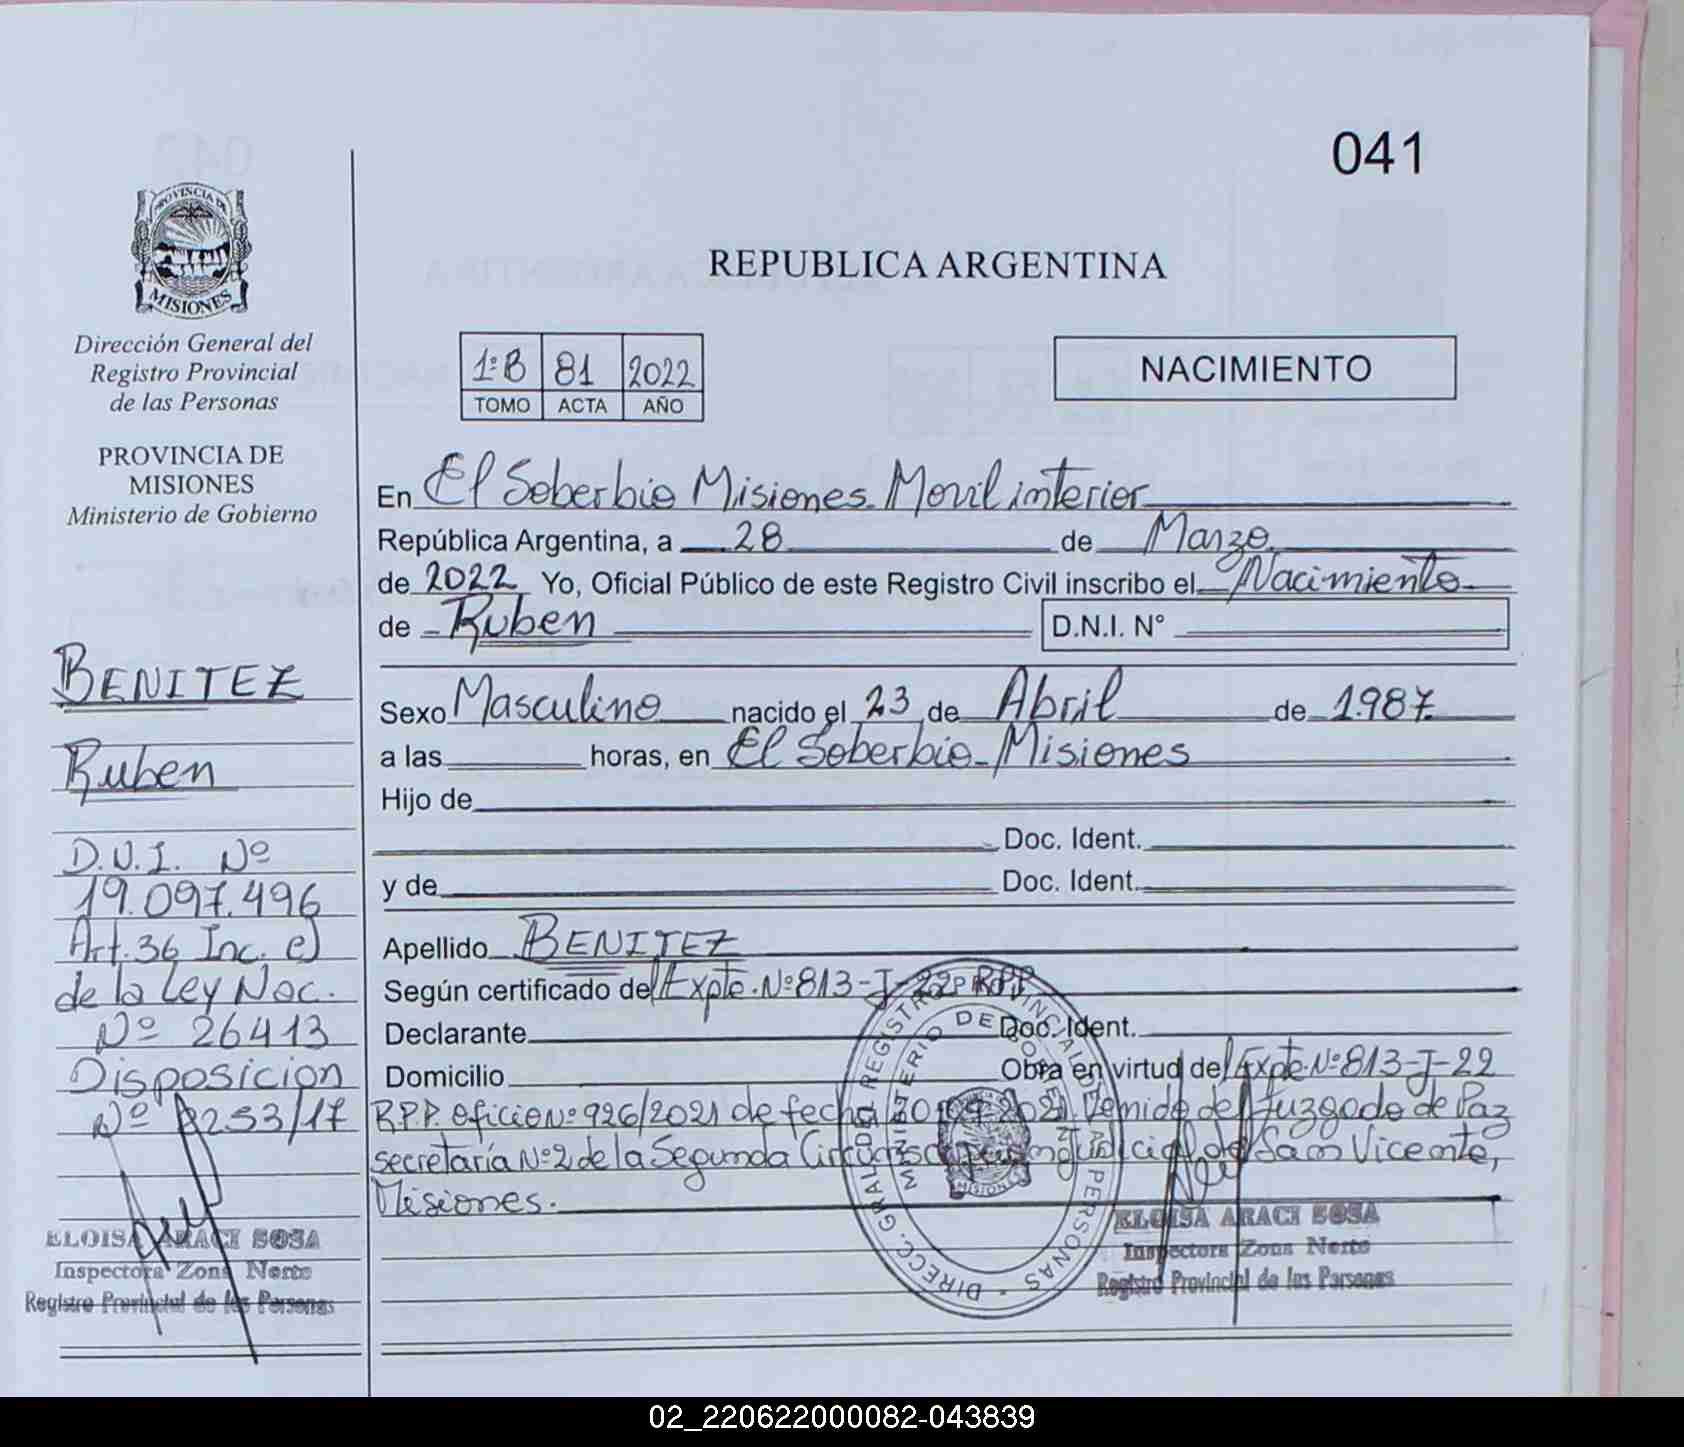 041
PROVINCIA DE
MISIONES
Dirección General del
Registro Provincial
de las Personas
PROVINCIA DE
MISIONES
Ministerio de Gobierno
BENITEZ
Ruben
D.N.I. Nº
19.097.496
Art. 36 Inc. e)
de la Ley Nac.
Nº 26413
Disposicion
Nº 3253/17
ELOISA ARACI SOSA
Inspectora Zona Norte
Registro Provincial de las Personas
REPUBLICA ARGENTINA
1:B 81 2022
TOMO ACTA AÑO
NACIMIENTO
En El Soberbio Misiones. Movil interior
República Argentina, a 28 de Marzo
de 2022 Yo, Oficial Público de este Registro Civil inscribo el Nacimiento
de Ruben D.N.I. N°
Sexo Masculino nacido el 23 de Abril de 1.987
a las horas, en El Soberbio - Misiones
Hijo de
Doc. Ident.
y de Doc. Ident.
Apellido BENITEZ
Según certificado del Expte. Nº 813-J-22 RPP
Declarante Doc. Ident.
Domicilio Obra en virtud del Expte. Nº 813-J-22
R.P.P. oficio Nº 926/2021 de fecha del Juzgado de Paz
secretaría Nº 2, de la Segunda Circunscripcion Judicial de San Vicente,
Misiones.
DIRECC. GRAL. DEL REGISTRO PROVINCIAL DE LAS PERSONAS
MINISTERIO DE GOBIERNO
MISIONES
ELOISA ARACI SOSA
Inspectora Zona Norte
Registro Provincial de las Personas
02_220622000082-043839